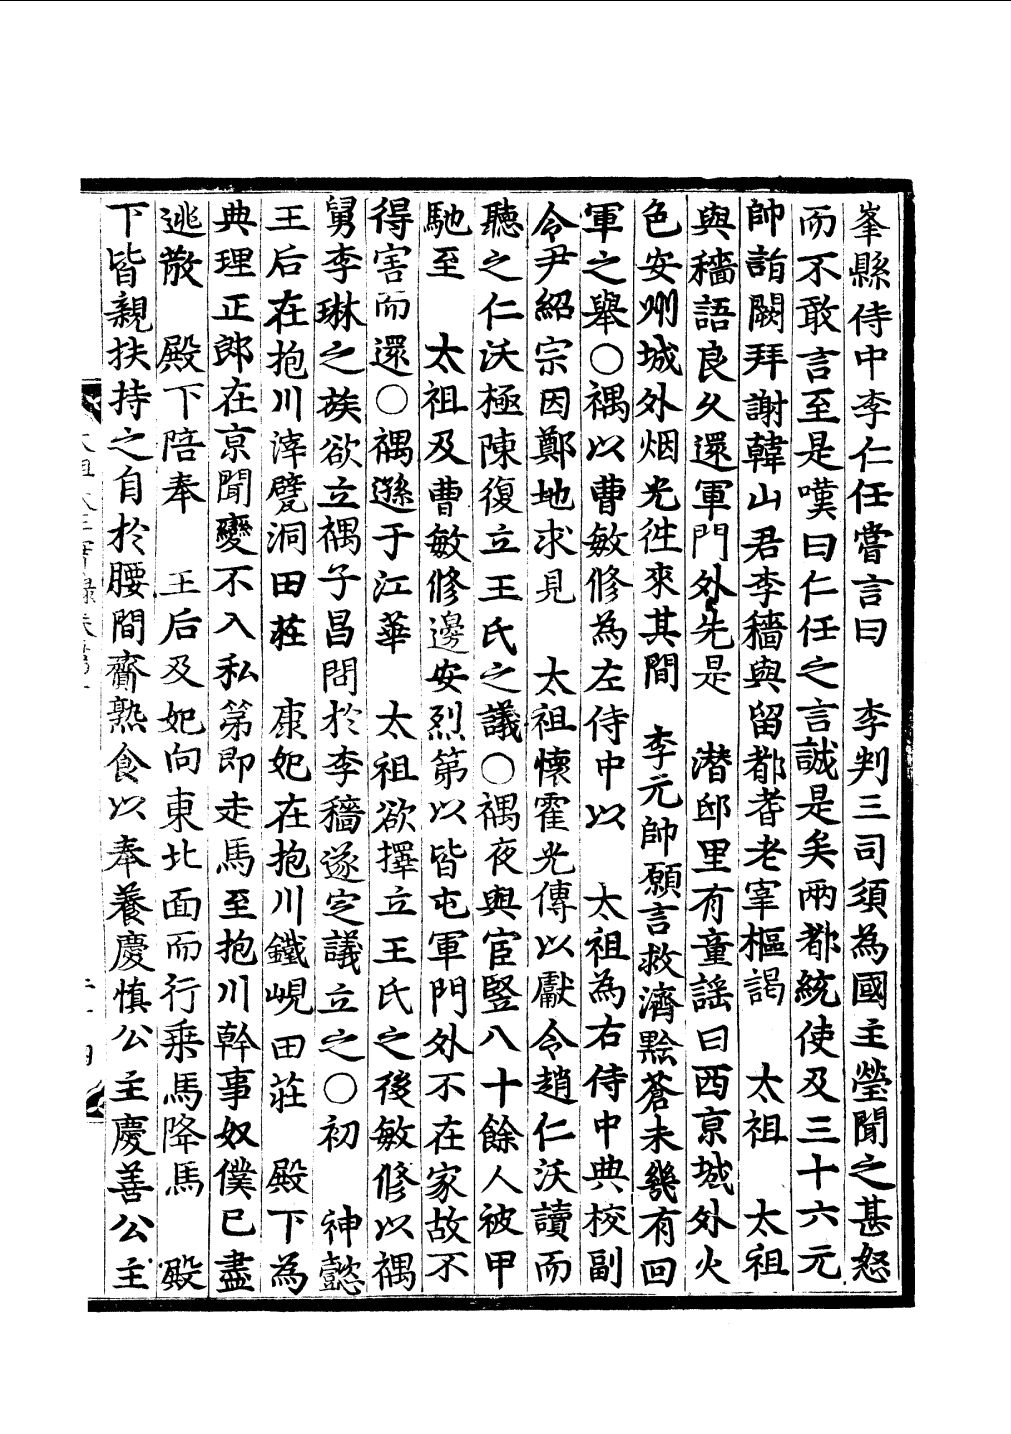 峯縣侍中李仁任嘗言曰　李判三司須為國主瑩聞之甚怒
而不敢言至是嘆曰仁任之言誠是矣兩都統使及三十六元
帥詣闕拜謝韓山君李穡與留都耆老宰樞謁　太祖　太祖
與穡語良久還軍門外先是　潛邸里有童謠曰西京城外火
色安州城外烟光徃來其間　李元帥願言救濟黔蒼未幾有回
軍之擧○禑以曹敏修為左侍中以　太祖為右侍中典校副
令尹紹宗因鄭地求見　太祖懷霍光傳以獻令趙仁沃讀而
聽之仁沃極陳復立王氏之議○禑夜與宦竪八十餘人被甲
馳至　太祖及曹敏修邊安烈第以皆屯軍門外不在家故不
得害而還○禑遜于江華　太祖欲擇立王氏之後敏修以禑
舅李琳之族欲立禑子昌問於李穡遂定議立之○初　神懿
王后在抱川滓甓洞田莊　康妃在抱川鐵峴田莊　殿下為
典理正郎在京聞變不入私第即走馬至抱川幹事奴僕已盡
逃散　殿下陪奉　王后及妃向東北面而行乘馬降馬　殿
下皆親扶持之自於腰間齎熟食以奉養慶愼公主慶善公主